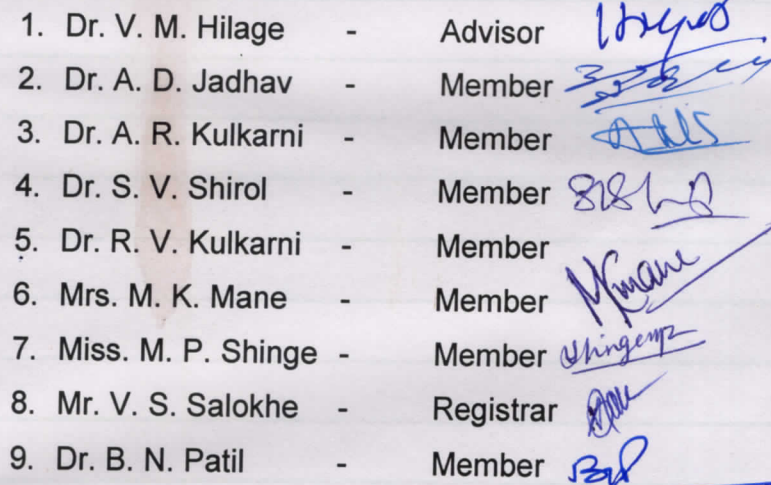 1. Dr. V. M. Hilage - Advisor
2. Dr. A. D. Jadhav - Member
3. Dr. A. R. Kulkarni - Member
4. Dr. S. V. Shirol - Member
5. Dr. R. V. Kulkarni - Member
6. Mrs. M. K. Mane - Member MKmane
7. Miss. M. P. Shinge - Member Shingemp
8. Mr. V. S. Salokhe - Registrar
9. Dr. B. N. Patil - Member